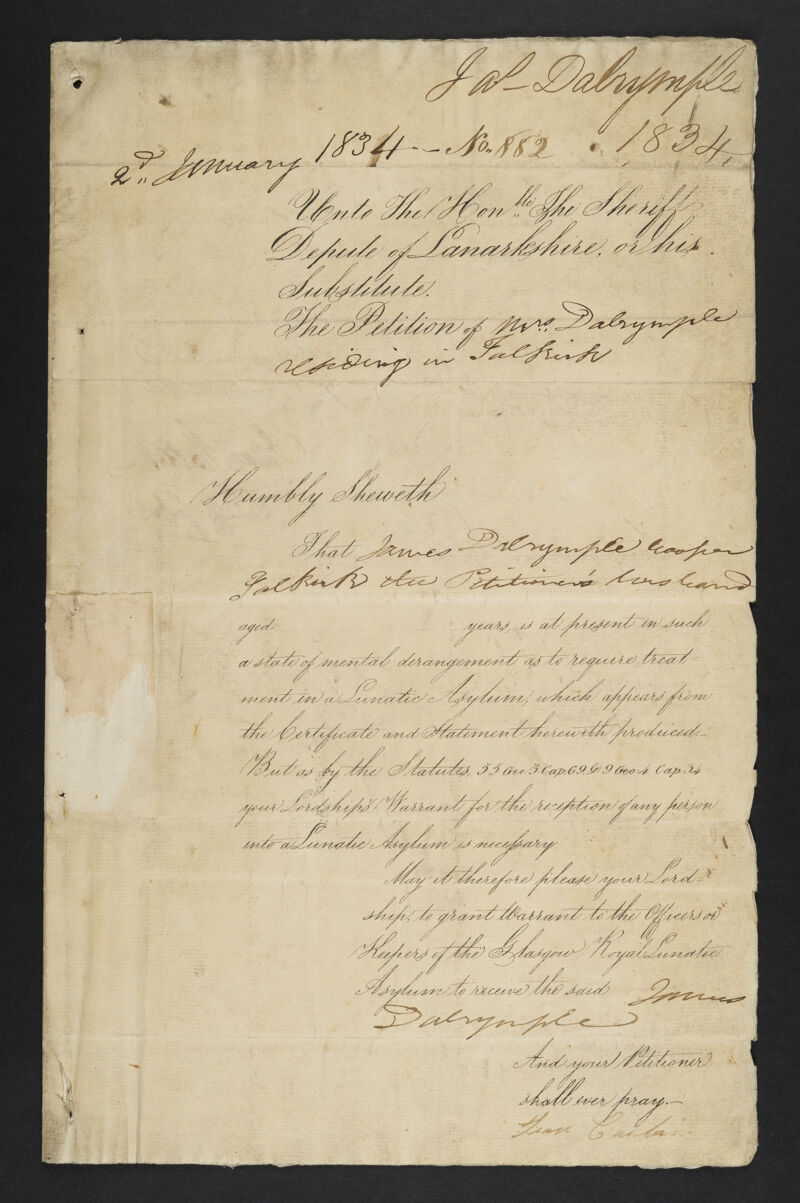 Jas Dalrymple
2d. January 1834 - No. 882 . 1834,
Unto The Honble. The Sheriff
Depute of Lanarkshire, or his
Substitute.
The Petition of Mrs. Dalrymple
residing in Falkirk
Humbly Sheweth
That James Dalrymple Cooper
Falkirk the Petitioner's husband
aged years, is at present in such
a state of mental derangement as to require treat-
ment in a Lunatic Asylum, which appears from
the Certificate and Statement herewith produced-
But as by the Statutes, 55 Geo 3 Cap 69 & 9 Geo 4 Cap 34
your Lordship's Warrant for the reception of any person
into a Lunatic Asylum is necessary
May it therefore please your Lord-
ship, to grant Warrant to the Officers or
Keepers of the Glasgow Royal Lunatic
Asylum to receive the said James
Dalrymple
And your Petitioner
shall ever pray.-